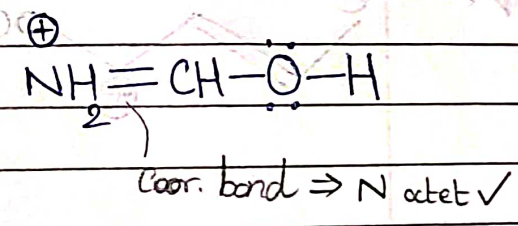 ⊕
NH₂=CH-Ö-H
Coor. bond ⇒ N octet ✓